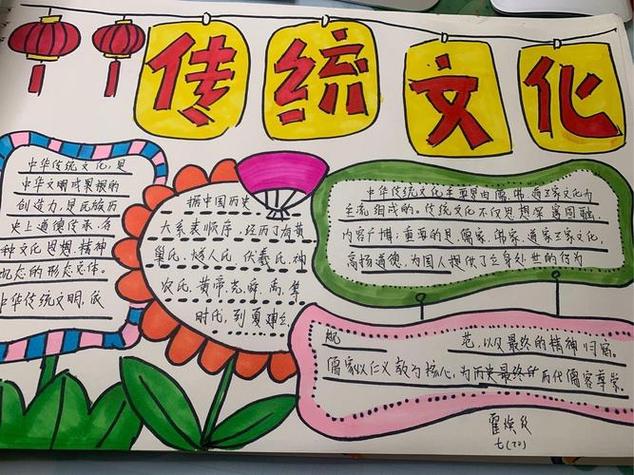 传统文化
中华传统文化,是
中华文明成果根的
创造力,是民族历
史上道德传承,各
种文化思想、精神
观念的形态实体。
中华传统文明,依
据中国历史
大系表顺序,经历了有巢
氏、燧人氏、伏羲氏、神
农氏、黄帝、尧、舜、禹、等
时代,到夏建立
中华传统文化主要是由儒、佛、道三家文化为
主流组成的。传统文化不仅思想深邃圆融,
内容广博;重要的是,儒家、佛家、道家三家文化,
高扬道德,为国人提供了立身处世的行为
规 范,以及最终的精神归宿。
儒家以仁义教为核心,为历史最终 历代儒客尊崇。
七(22)